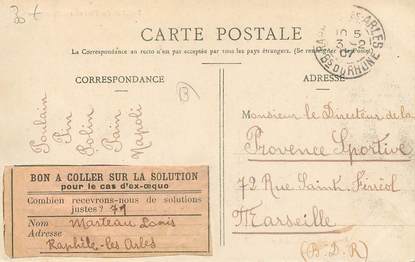 CARTE POSTALE
La Correspondance au recto n'est pas acceptée par tous les pays étrangers. (Se renseigner à la Poste)
CORRESPONDANCE
Poulain
Pin
Rolin
Pain
Napoli
BON A COLLER SUR LA SOLUTION
pour le cas d'ex-æquo
Combien recevrons-nous de solutions
justes?
Nom Marteau Louis
Adresse
Raphèle-les-Arles
ARLES
BES DU RHONE
ADRESSE
Monsieur le Directeur de la
Provence Sportive
72 Rue Saint Ferréol
Marseille
(B-D-R)